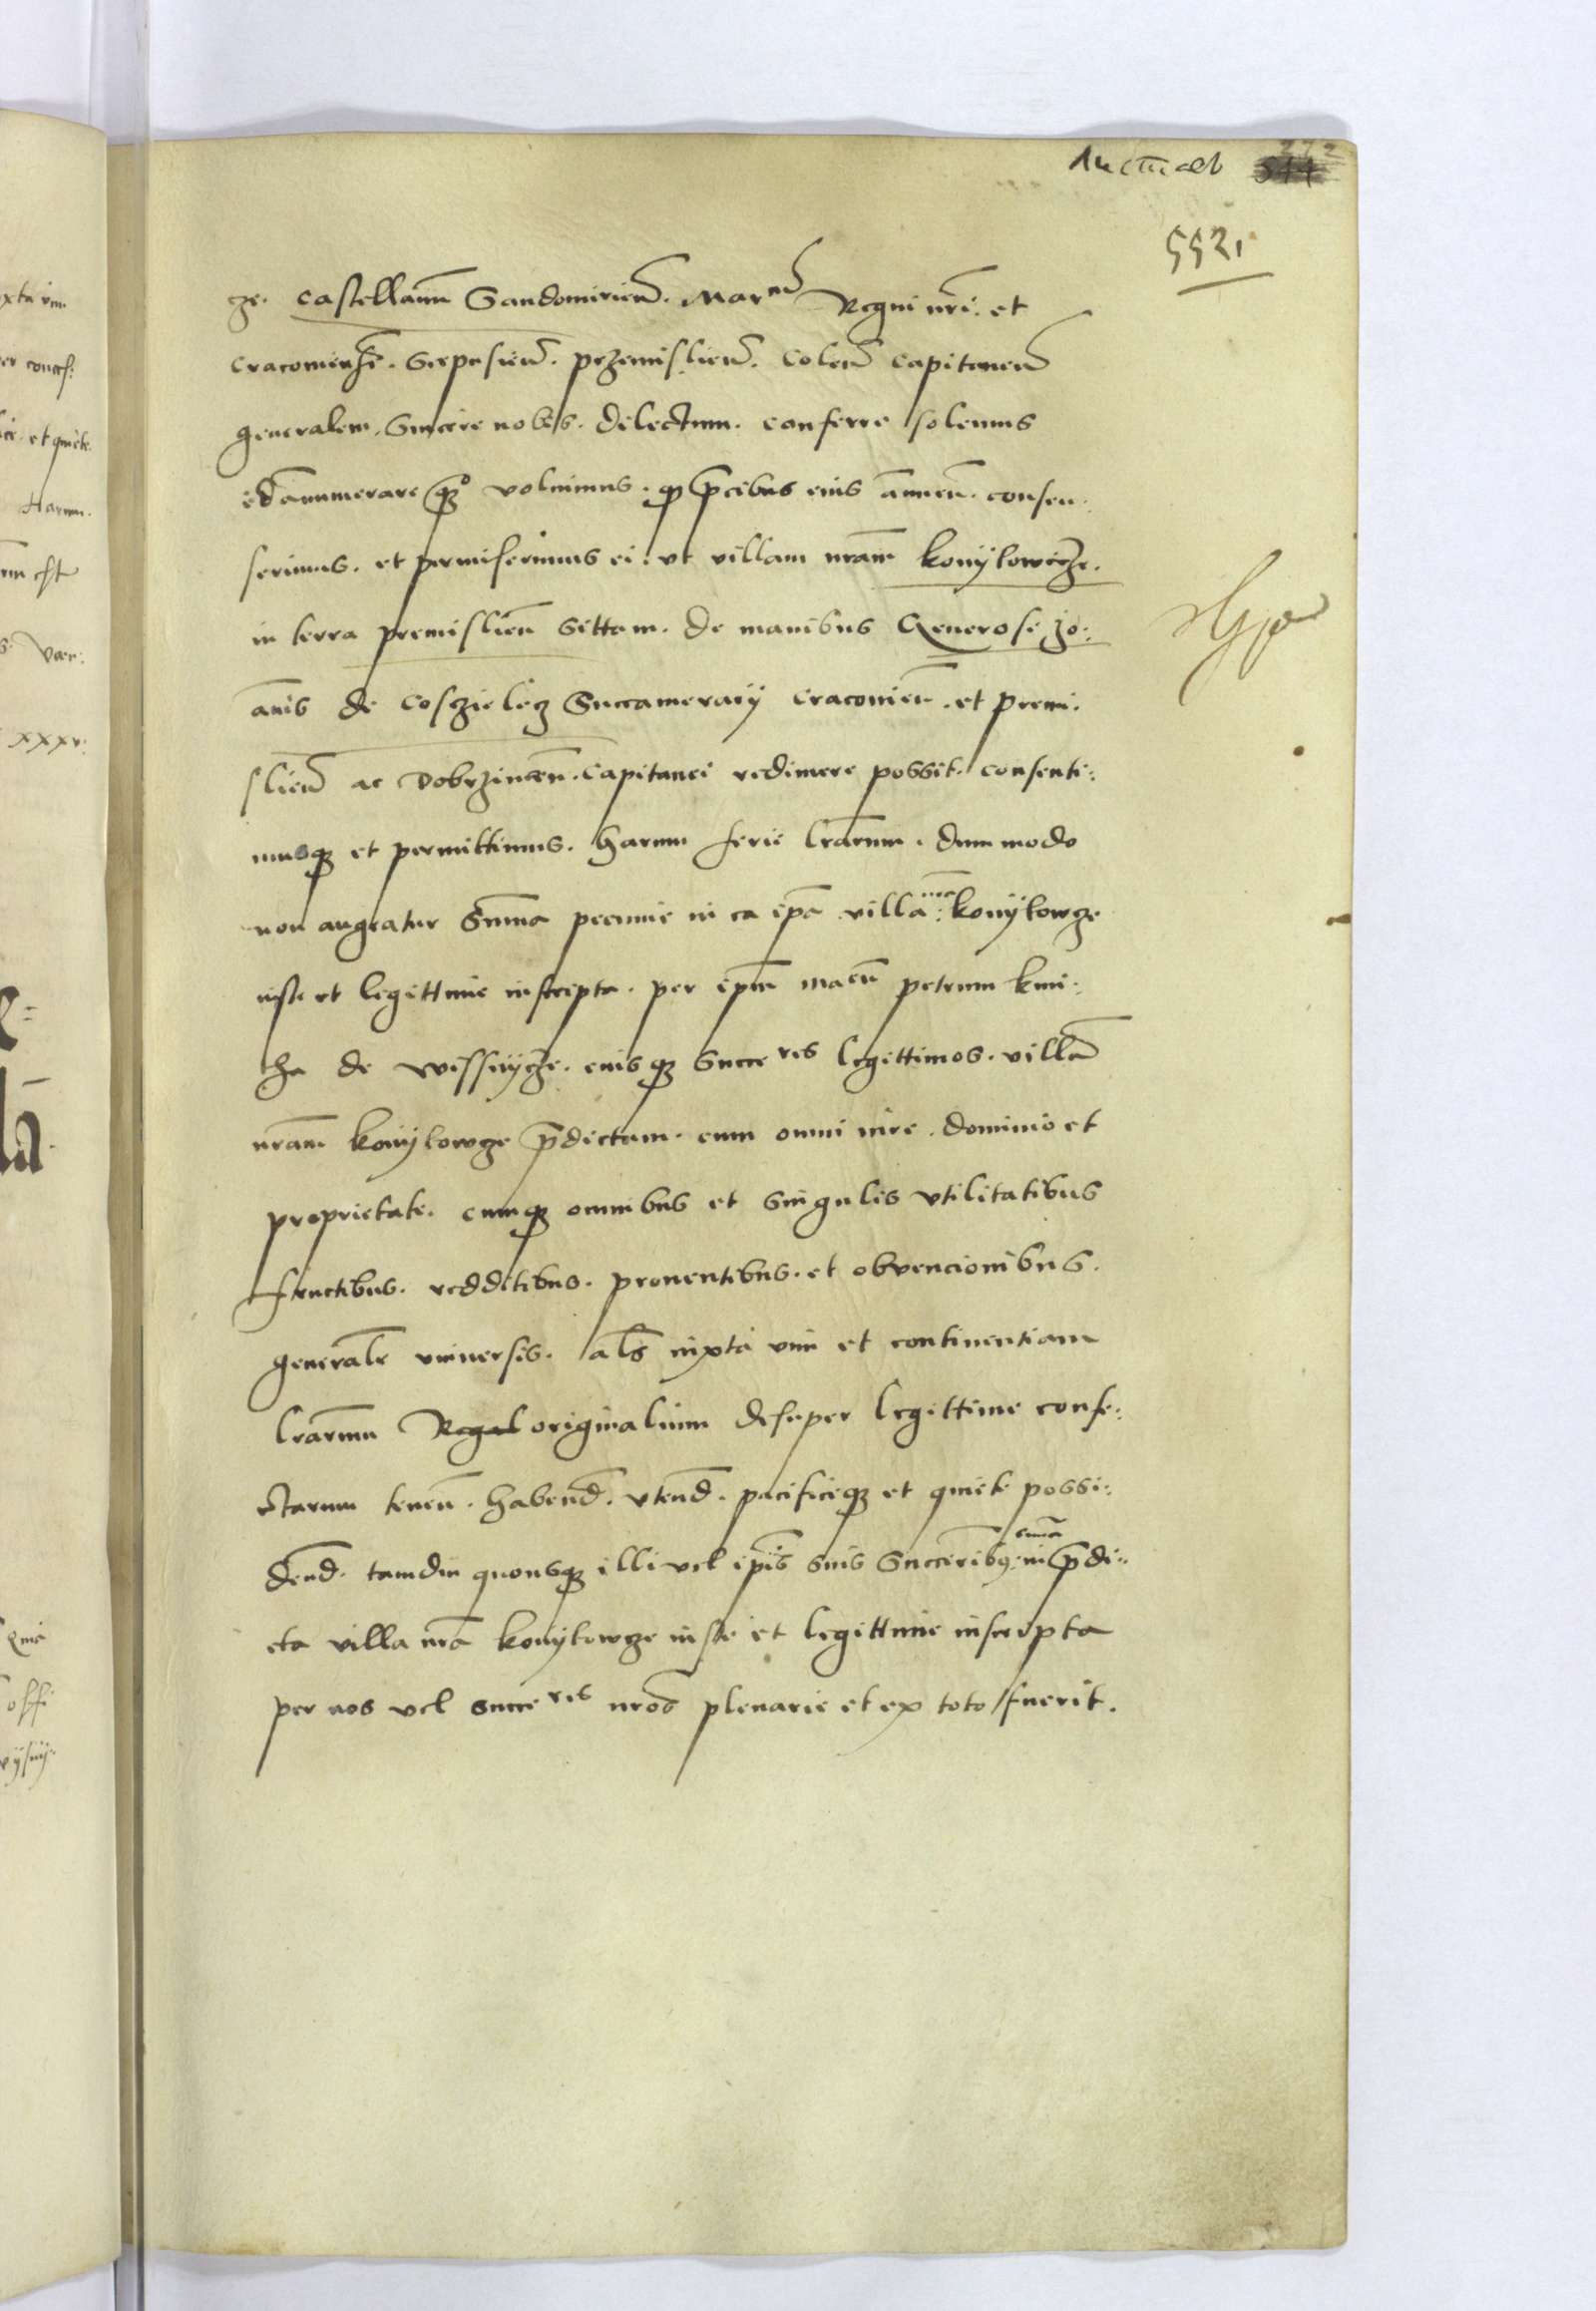 272
552.
ze. Castellanū Sandomirień. Marᵘᵐ Regni nri. et
Cracovienſē. Scepusień. przemislień. Coleń Capitaneū
generalem. Sincere nobis. dilectum. conferre solemus
adānumerareqꝫ volumus. precibus eius annueń. consen:
serimus. et permiserimus ei. vt villam nrām konijlowicze.
in terra premislień sittam. de manibus Generosi Jo:
ānis de Coszielecz Succamerarij Cracovień. et premi:
slień ac Dobrzineń. Capitanei redimere possit. consenti:
musqꝫ et permittimus. harum serie lrārum. dummodo
non augeatur Summa pecunie in ea ipā villa nrā konijlowze
iuste et legittime inscripta. per ipm̄ mᵃᶜᵘᵐ petrum kmi:
tha de wissnijcze. eiusqꝫ succeʳᵉˢ legittimos. villā
nrām konijlowze p̄dictam. cum omni iure. dominio et
proprietate. cumqꝫ omnibus et singulis vtilitatibus
fructibus. redditibus. proventibus. et obvencionibus.
generalr vniversis. als iuxta vim et continentiam
lrārum originalium desuper legittime confe:
ctarum teneń. habend. vtend. pacificeqꝫ et quiete possi:
dend. tamdiu quousqꝫ illi vel ipis suis Succeribꝫ. sumā in p̄di:
cta villa nrā konijlowze iuste et legittime inscripta
per nos vel succeʳᵉˢ nros plenarie et ex toto fuerit.